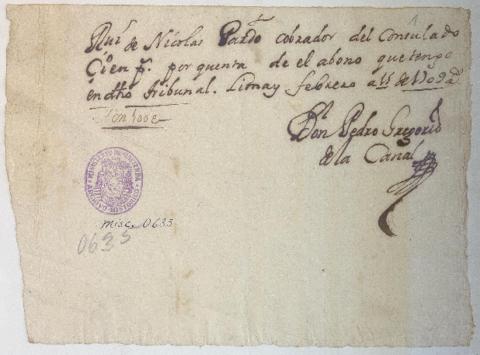 1
Rui de Nicolas Pardo cobrador del Consulado
por quenta de el abono que tengo
en dho tribunal. Lima y febrero a
Son 100
Don Pedro Gregorio
de la Canal
misc. 0633
0633